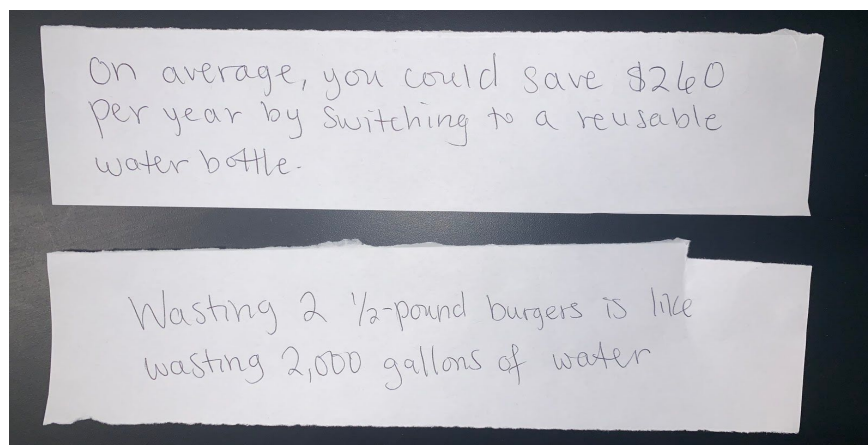 On average, you could save $260
per year by switching to a reusable
water bottle.
Wasting 2 1/2-pound burgers is like
wasting 2,000 gallons of water